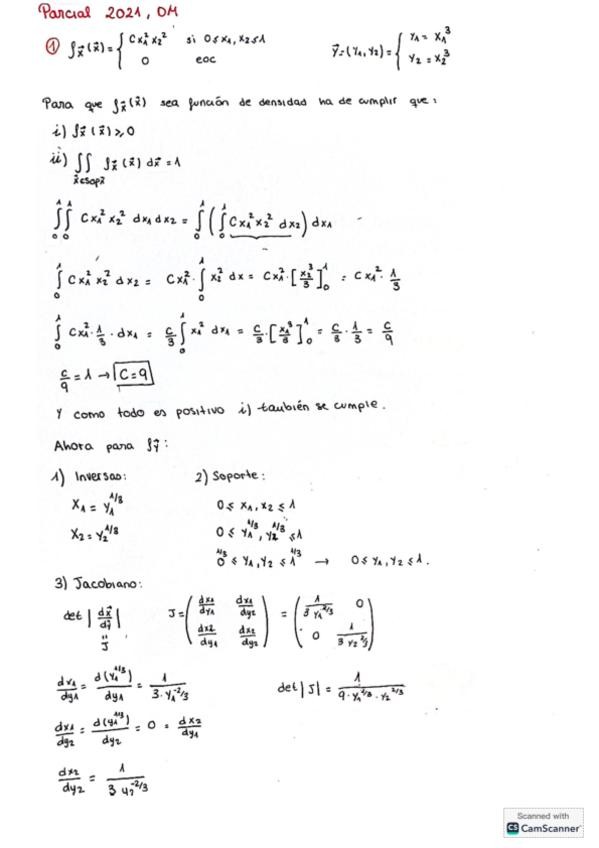 Parcial 2021, DM
① f_x⃗(x⃗) = { Cx₁²x₂² si 0≤x₁,x₂≤1
0 eoc
y⃗=(y₁,y₂)= { y₁=x₁³
y₂=x₂³
Para que f_x⃗(x⃗) sea función de densidad ha de cumplir que:
i) f_x⃗(x⃗)≥0
ii) ∬ f_x⃗(x⃗) dx⃗ = 1
x⃗∈sop x⃗
∫₀¹∫₀¹ Cx₁²x₂² dx₁dx₂ = ∫₀¹(∫₀¹ Cx₁²x₂² dx₂)dx₁
∫₀¹ Cx₁²x₂² dx₂ = Cx₁²·∫₀¹ x₂² dx = Cx₁²·[x₂³/3]₀¹ = Cx₁²·1/3
∫₀¹ Cx₁²·1/3·dx₁ = C/3 ∫₀¹ x₁² dx₁ = C/3·[x₁³/3]₀¹ = C/3·1/3 = C/9
C/9 = 1 → C=9
Y como todo es positivo i) también se cumple.
Ahora para f_y⃗:
1) Inversas: 2) Soporte:
x₁ = y₁^1/3 0≤x₁,x₂≤1
x₂ = y₂^1/3 0≤y₁^1/3,y₂^1/3≤1
0^1/3≤y₁,y₂≤1^1/3 → 0≤y₁,y₂≤1.
3) Jacobiano:
det |dx⃗/dy⃗| J = (dx₁/dy₁ dx₁/dy₂
dx₂/dy₁ dx₂/dy₂) = (1/3y₁^2/3 0
0 1/3y₂^2/3)
"
J
dx₁/dy₁ = d(y₁^1/3)/dy₁ = 1/3·y₁^-2/3 det|J| = 1/9·y₁^2/3·y₂^2/3
dx₁/dy₂ = d(y₁^1/3)/dy₂ = 0 = dx₂/dy₁
dx₂/dy₂ = 1/3y₂^-2/3
Scanned with
CS CamScanner